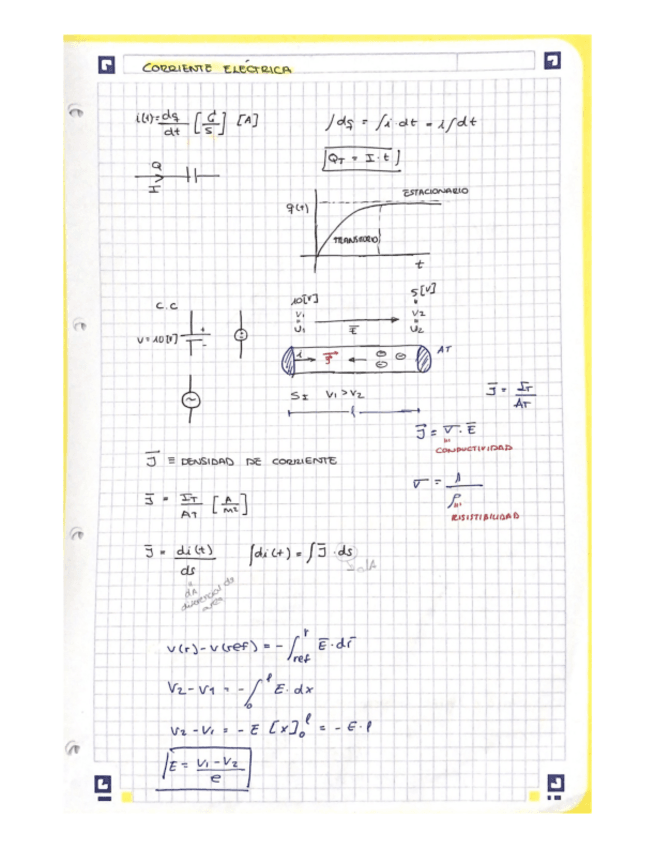 CORRIENTE ELÉCTRICA
i(t)=dq/dt [C/s] [A]
∫dq = ∫i·dt = i∫dt
QT = I·t
Q
I
ESTACIONARIO
q(t)
TRANSITORIO
t
C.C
V=10[V]
+
-
~
10[V]
V1
U1
E
5[V]
V2
U2
i
J
AT
SI V1>V2
l
J = IT/AT
J = σ·E
CONDUCTIVIDAD
J ≡ DENSIDAD DE CORRIENTE
σ = 1/ρ
RISISTIBILIDAD
J = IT/AT [A/m2]
J = di(t)/ds
∫di(t) = ∫J·ds
SdA
dA
diferencial de
area
V(r)-V(ref) = -∫ref r E·dr
V2-V1 = -∫0 l E·dx
V2-V1 = -E [x]0 l = -E·l
E = V1-V2/e